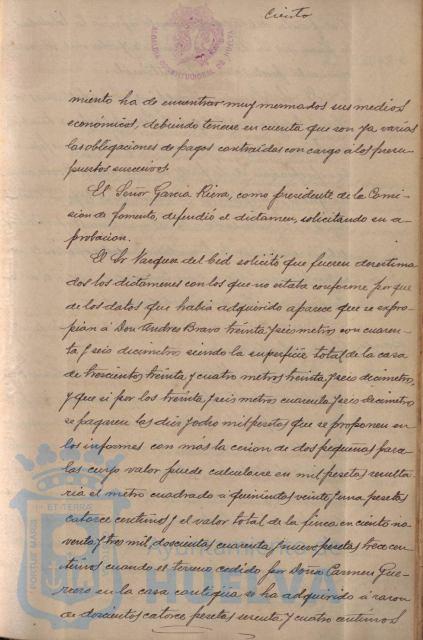 Ciento
ALCALDIA CONSTITUCIONAL DE HUELVA
miento ha de encontrar muy mermados sus medios
económicos, debiendo tenerse en cuenta que son ya varias
las obligaciones de pagos contraídas con cargo á los presu-
puestos sucesivos.
El Señor Garcia Riera, como presidente de la Comi-
sion de fomento, defendió el dictamen, solicitando su a-
probacion.
El Sr Vazquez del Cid solicitó que fueren desestima
dos los dictamenes con los que no estaba conforme porque
de los datos que habia adquirido aparece que se expro-
pian á Don Andres Bravo treinta y seis metros con cuaren-
ta y seis decimetros siendo la superficie total de la casa
de trescientos treinta y cuatro metros treinta y seis decimetros,
y que si por los treinta y seis metros cuarenta y seis decimetros
se pagaren las diez y ocho mil pesetas que se proponen en
los informes con más la cesion de dos pequeñas parce-
las cuyo valor puede calcularse en mil pesetas resulta-
ria el metro cuadrado a quinientas veinte y una pesetas
catorce centimos y el valor total de la finca en ciento no
venta y tres mil doscientas cuarenta y nueve pesetas trece cen-
timos cuando el terreno cedido por Doña Carmen Gue-
rrero en la casa contigua se ha adquirido á razon
de doscientos catorce pesetas y cuatro centimos
PORTUS MARIS ET TERRAE
Ayuntamiento
HUELVA